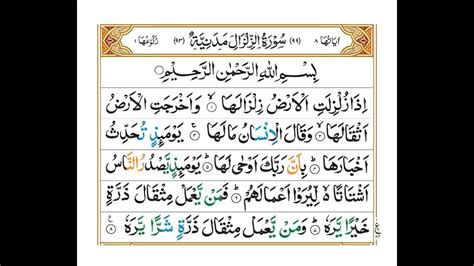 اٰيَاتُهَا ٨ (٩٩) سُوْرَةُ الزِّلْزَالِ مَدَنِيَّةٌ (٩٣) رُكُوْعُهَا ١
بِسْمِ اللّٰهِ الرَّحْمٰنِ الرَّحِيْمِ
اِذَا زُلْزِلَتِ الْاَرْضُ زِلْزَالَهَا ۙ‏ ١ وَاَخْرَجَتِ الْاَرْضُ
اَثْقَالَهَا ۙ‏ ٢ وَقَالَ الْاِنْسَانُ مَا لَهَا ۚ‏ ٣ يَوْمَئِذٍ تُحَدِّثُ
اَخْبَارَهَا ۙ‏ ٤ بِاَنَّ رَبَّكَ اَوْحٰى لَهَا ؕ‏ ٥ يَوْمَئِذٍ يَّصْدُرُ النَّاسُ
اَشْتَاتًا ۙ۬ لِّيُرَوْا اَعْمَالَهُمْ ؕ‏ ٦ فَمَنْ يَّعْمَلْ مِثْقَالَ ذَرَّةٍ
خَيْرًا يَّرَهٗ ؕ‏ ٧ وَمَنْ يَّعْمَلْ مِثْقَالَ ذَرَّةٍ شَرًّا يَّرَهٗ ٨ ع